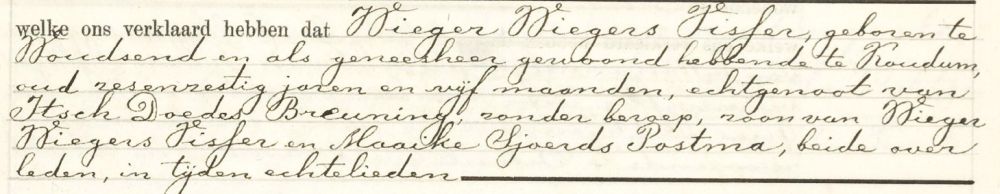 welke ons verklaard hebben dat Wieger Wiegers Visser, geboren te
Woudsend en als geneesheer gewoond hebbende te Koudum,
oud zesenzestig jaren en vijf maanden, echtgenoot van
Itsch Doedes Breuning, zonder beroep, zoon van Wieger
Wiegers Visser en Maaike Sjoerds Postma, beide over
leden, in tijden echtelieden